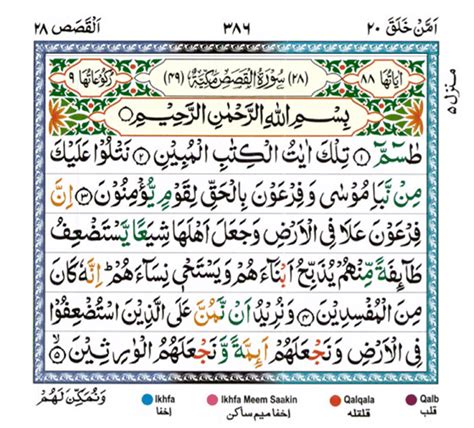 اَمَّنْ خَلَقَ ٢٠ ٣٨٦ اَلْقَصَصِ ٢٨
اٰيَاتُهَا ٨٨ (٢٨) سُوْرَةُ الْقَصَصِ مَكِّيَّةٌ (٤٩) رُكُوْعَاتُهَا ٩
منزل ٥
بِسْمِ اللّٰهِ الرَّحْمٰنِ الرَّحِيْمِ
طٰسٓمّٓ ۝١ تِلْكَ اٰيٰتُ الْكِتٰبِ الْمُبِيْنِ ۝٢ نَتْلُوْا عَلَيْكَ
مِنْ نَّبَاِ مُوْسٰى وَ فِرْعَوْنَ بِالْحَقِّ لِقَوْمٍ يُّؤْمِنُوْنَ ۝٣ اِنَّ
فِرْعَوْنَ عَلَا فِى الْاَرْضِ وَ جَعَلَ اَهْلَهَا شِيَعًا يَّسْتَضْعِفُ
طَآىِٕفَةً مِّنْهُمْ يُذَبِّحُ اَبْنَآءَهُمْ وَ يَسْتَحْيٖ نِسَآءَهُمْ ؕ اِنَّهٗ كَانَ
مِنَ الْمُفْسِدِيْنَ ۝٤ وَ نُرِيْدُ اَنْ نَّمُنَّ عَلَى الَّذِيْنَ اسْتُضْعِفُوْا
فِى الْاَرْضِ وَ نَجْعَلَهُمْ اَىِٕمَّةً وَّ نَجْعَلَهُمُ الْوٰرِثِيْنَ ۝٥
Ikhfa Ikhfa Meem Saakin Qalqala Qalb
اخفا اخفا میم ساکن قلقله قلب
وَ نُمَكِّنَ لَهُمْ